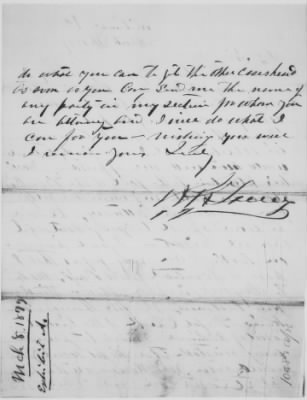 do what you can to get the other
as soon as you Can Send me the name of
any party in my section for whom you
are attorney and I will do what I
can for you - wishing you well
I remain yours
Mch 8, 1879